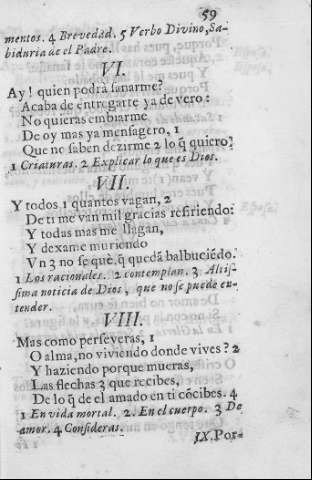 59
mentos. 4 Brevedad. 5 Verbo Divino, Sa-
biduria de el Padre.
VI.
Ay! quien podrà sanarme?
Acaba de entregarte ya de vero:
No quieras embiarme
De oy mas ya mensagero, 1
Que no saben dezirme 2 lo q̃ quiero?
1 Criaturas. 2 Explicar lo que es Dios.
VII.
Y todos 1 quantos vagan, 2
De ti me van mil gracias refiriendo:
Y todas mas me llagan,
Y dexame muriendo
Vn 3 no se què, q̃ quedã balbuciẽdo.
1 Los racionales. 2 contemplan. 3 Altis-
sima noticia de Dios, que no se puede en-
tender.
VIII.
Mas como perseveras, 1
O alma, no viviendo donde vives? 2
Y haziendo porque mueras,
Las flechas 3 que recibes,
De lo q̃ de el amado en ti cõcibes. 4
1 En vida mortal. 2. En el cuerpo. 3 De
amor. 4 Consideras.
IX. Por-